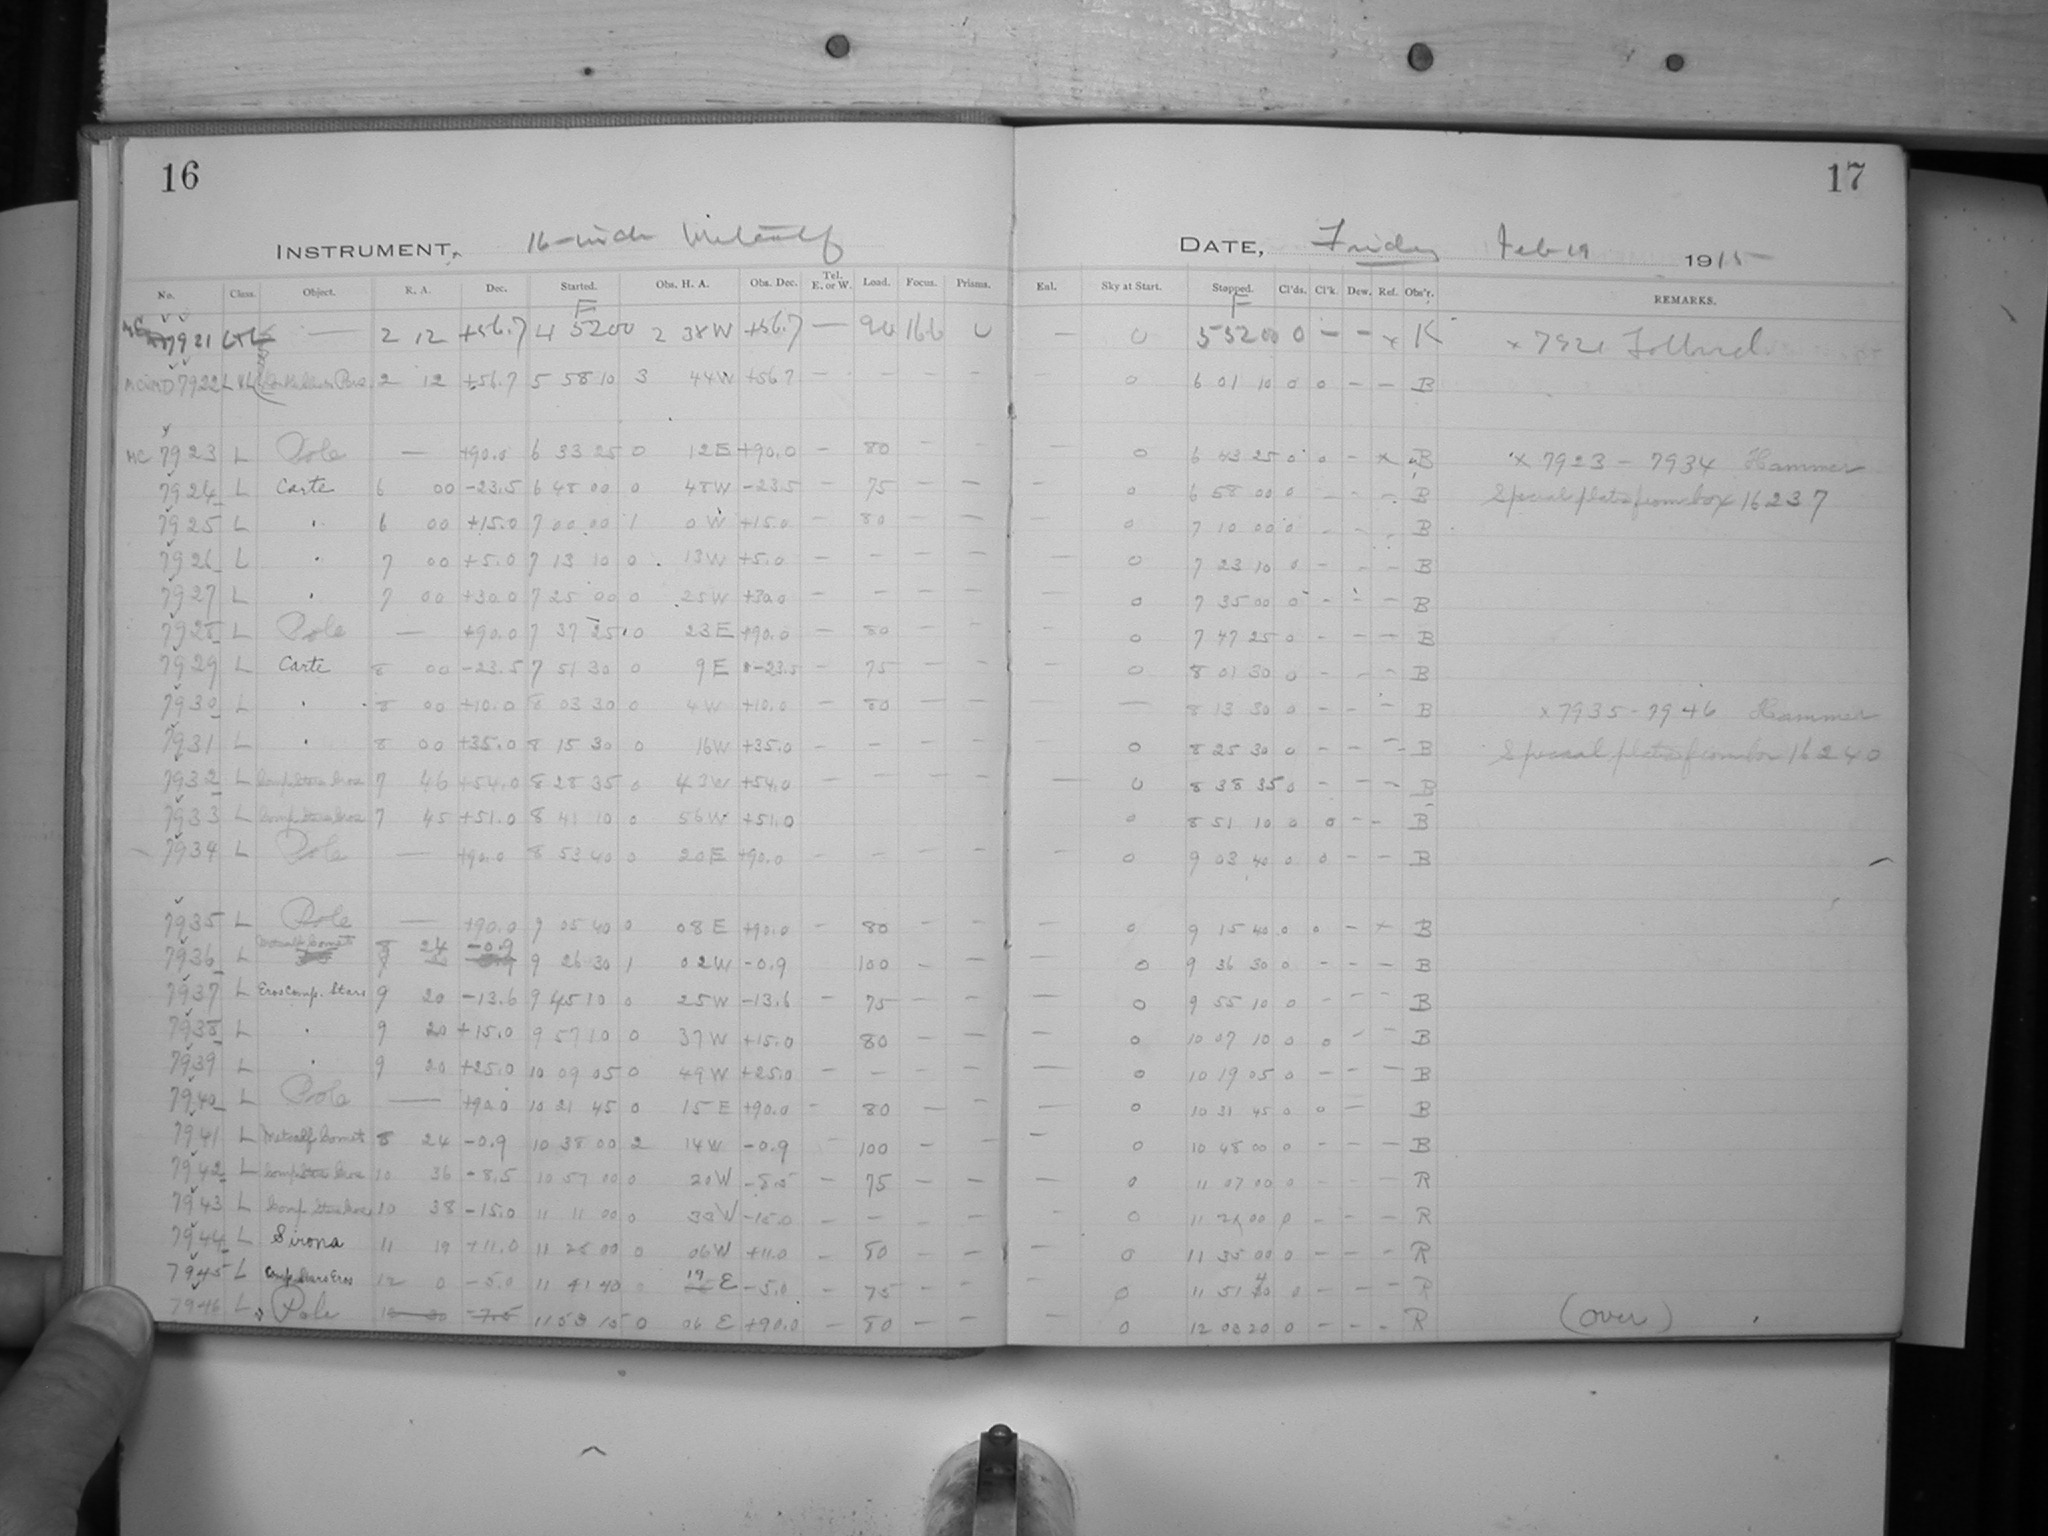 16
17
INSTRUMENT, 16-inch Metcalf
DATE, Friday Feb 19 1915
No. Class. Object. R. A. Dec. Started. Obs. H. A. Obs. Dec. Tel. E. or W. Load. Focus. Prisms. Eal. Sky at Start. Stopped. Cl'ds. Cl'k. Dew. Ref. Obs'r. REMARKS.
F F
MC 7921 — 2 12 +56.7 4 52 00 2 38 W +56.7 — 90 16.6 0 — 0 5 52 00 0 — — x K x 7921
7922 L 2 12 +56.7 5 58 10 3 44 W +56.7 — — — — — 0 6 01 10 0 0 — — B
MC 7923 L Pole — +90.0 6 33 25 0 12 E +90.0 — 80 — — — 0 6 43 25 0 0 — x B x 7923 - 7934 Hammer
7924 L Carte 6 00 -23.5 6 48 00 0 48 W -23.5 — 75 — — — 0 6 58 00 0 — — — B Special plates from box 16237
7925 L " 6 00 +15.0 7 00 00 1 0 W +15.0 — 80 — — — 0 7 10 00 0 — — — B
7926 L " 7 00 +5.0 7 13 10 0 13 W +5.0 — — — — — 0 7 23 10 0 — — — B
7927 L " 7 00 +30.0 7 25 00 0 25 W +30.0 — — — — — 0 7 35 00 0 — — — B
7928 L Pole — +90.0 7 37 25 0 23 E +90.0 — 80 — — — 0 7 47 25 0 — — — B
7929 L Carte 8 00 -23.5 7 51 30 0 9 E -23.5 — 75 — — — 0 8 01 30 0 — — — B
7930 L " 8 00 +10.0 8 03 30 0 4 W +10.0 — 80 — — — 8 13 30 0 — — — B x 7935 - 7946 Hammer
7931 L " 8 00 +35.0 8 15 30 0 16 W +35.0 — — — — 0 8 25 30 0 — — — B Special plates from box 16240
7932 L Comp. Stars Eros 7 46 +54.0 8 28 35 0 43 W +54.0 — — — — — 0 8 38 35 0 — — — B
7933 L Comp. Stars Eros 7 45 +51.0 8 41 10 0 56 W +51.0 0 8 51 10 0 0 — — B
7934 L Pole — +90.0 8 53 40 0 20 E +90.0 — — — — — 0 9 03 40 0 0 — — B
7935 L Pole — +90.0 9 05 40 0 08 E +90.0 — 80 — — — 0 9 15 40 0 0 — x B
7936 L Metcalf Comet 8 24 -0.9 9 26 30 1 02 W -0.9 100 — — 0 9 36 30 0 — — — B
7937 L Eros Comp. Stars 9 20 -13.6 9 45 10 0 25 W -13.6 — 75 — — — 0 9 55 10 0 — — — B
7938 L " 9 20 +15.0 9 57 10 0 37 W +15.0 80 — — — 0 10 07 10 0 0 — — B
7939 L " 9 20 +25.0 10 09 05 0 49 W +25.0 — — — — — 0 10 19 05 0 — — — B
7940 L Pole — +90.0 10 21 45 0 15 E +90.0 — 80 — — — 0 10 31 45 0 0 — B
7941 L Metcalf Comet 8 24 -0.9 10 38 00 2 14 W -0.9 100 — — — 0 10 48 00 0 — — — B
7942 L Comp. Stars Eros 10 36 -8.5 10 57 00 0 20 W -8.5 — 75 — — — 0 11 07 00 0 — — — R
7943 L Comp. Stars Eros 10 38 -15.0 11 11 00 0 33 W -15.0 — — — — — 0 11 21 00 0 — — — R
7944 L Sirona 11 19 +11.0 11 25 00 0 06 W +11.0 — 80 — — — 0 11 35 00 0 — — — R
7945 L Comp. Stars Eros 12 0 -5.0 11 41 40 0 19 E -5.0 — 75 — — 0 11 51 40 0 — — — R
7946 L Pole 11 53 15 0 06 E +90.0 — 80 — — — 0 12 03 20 0 — — — R (over)